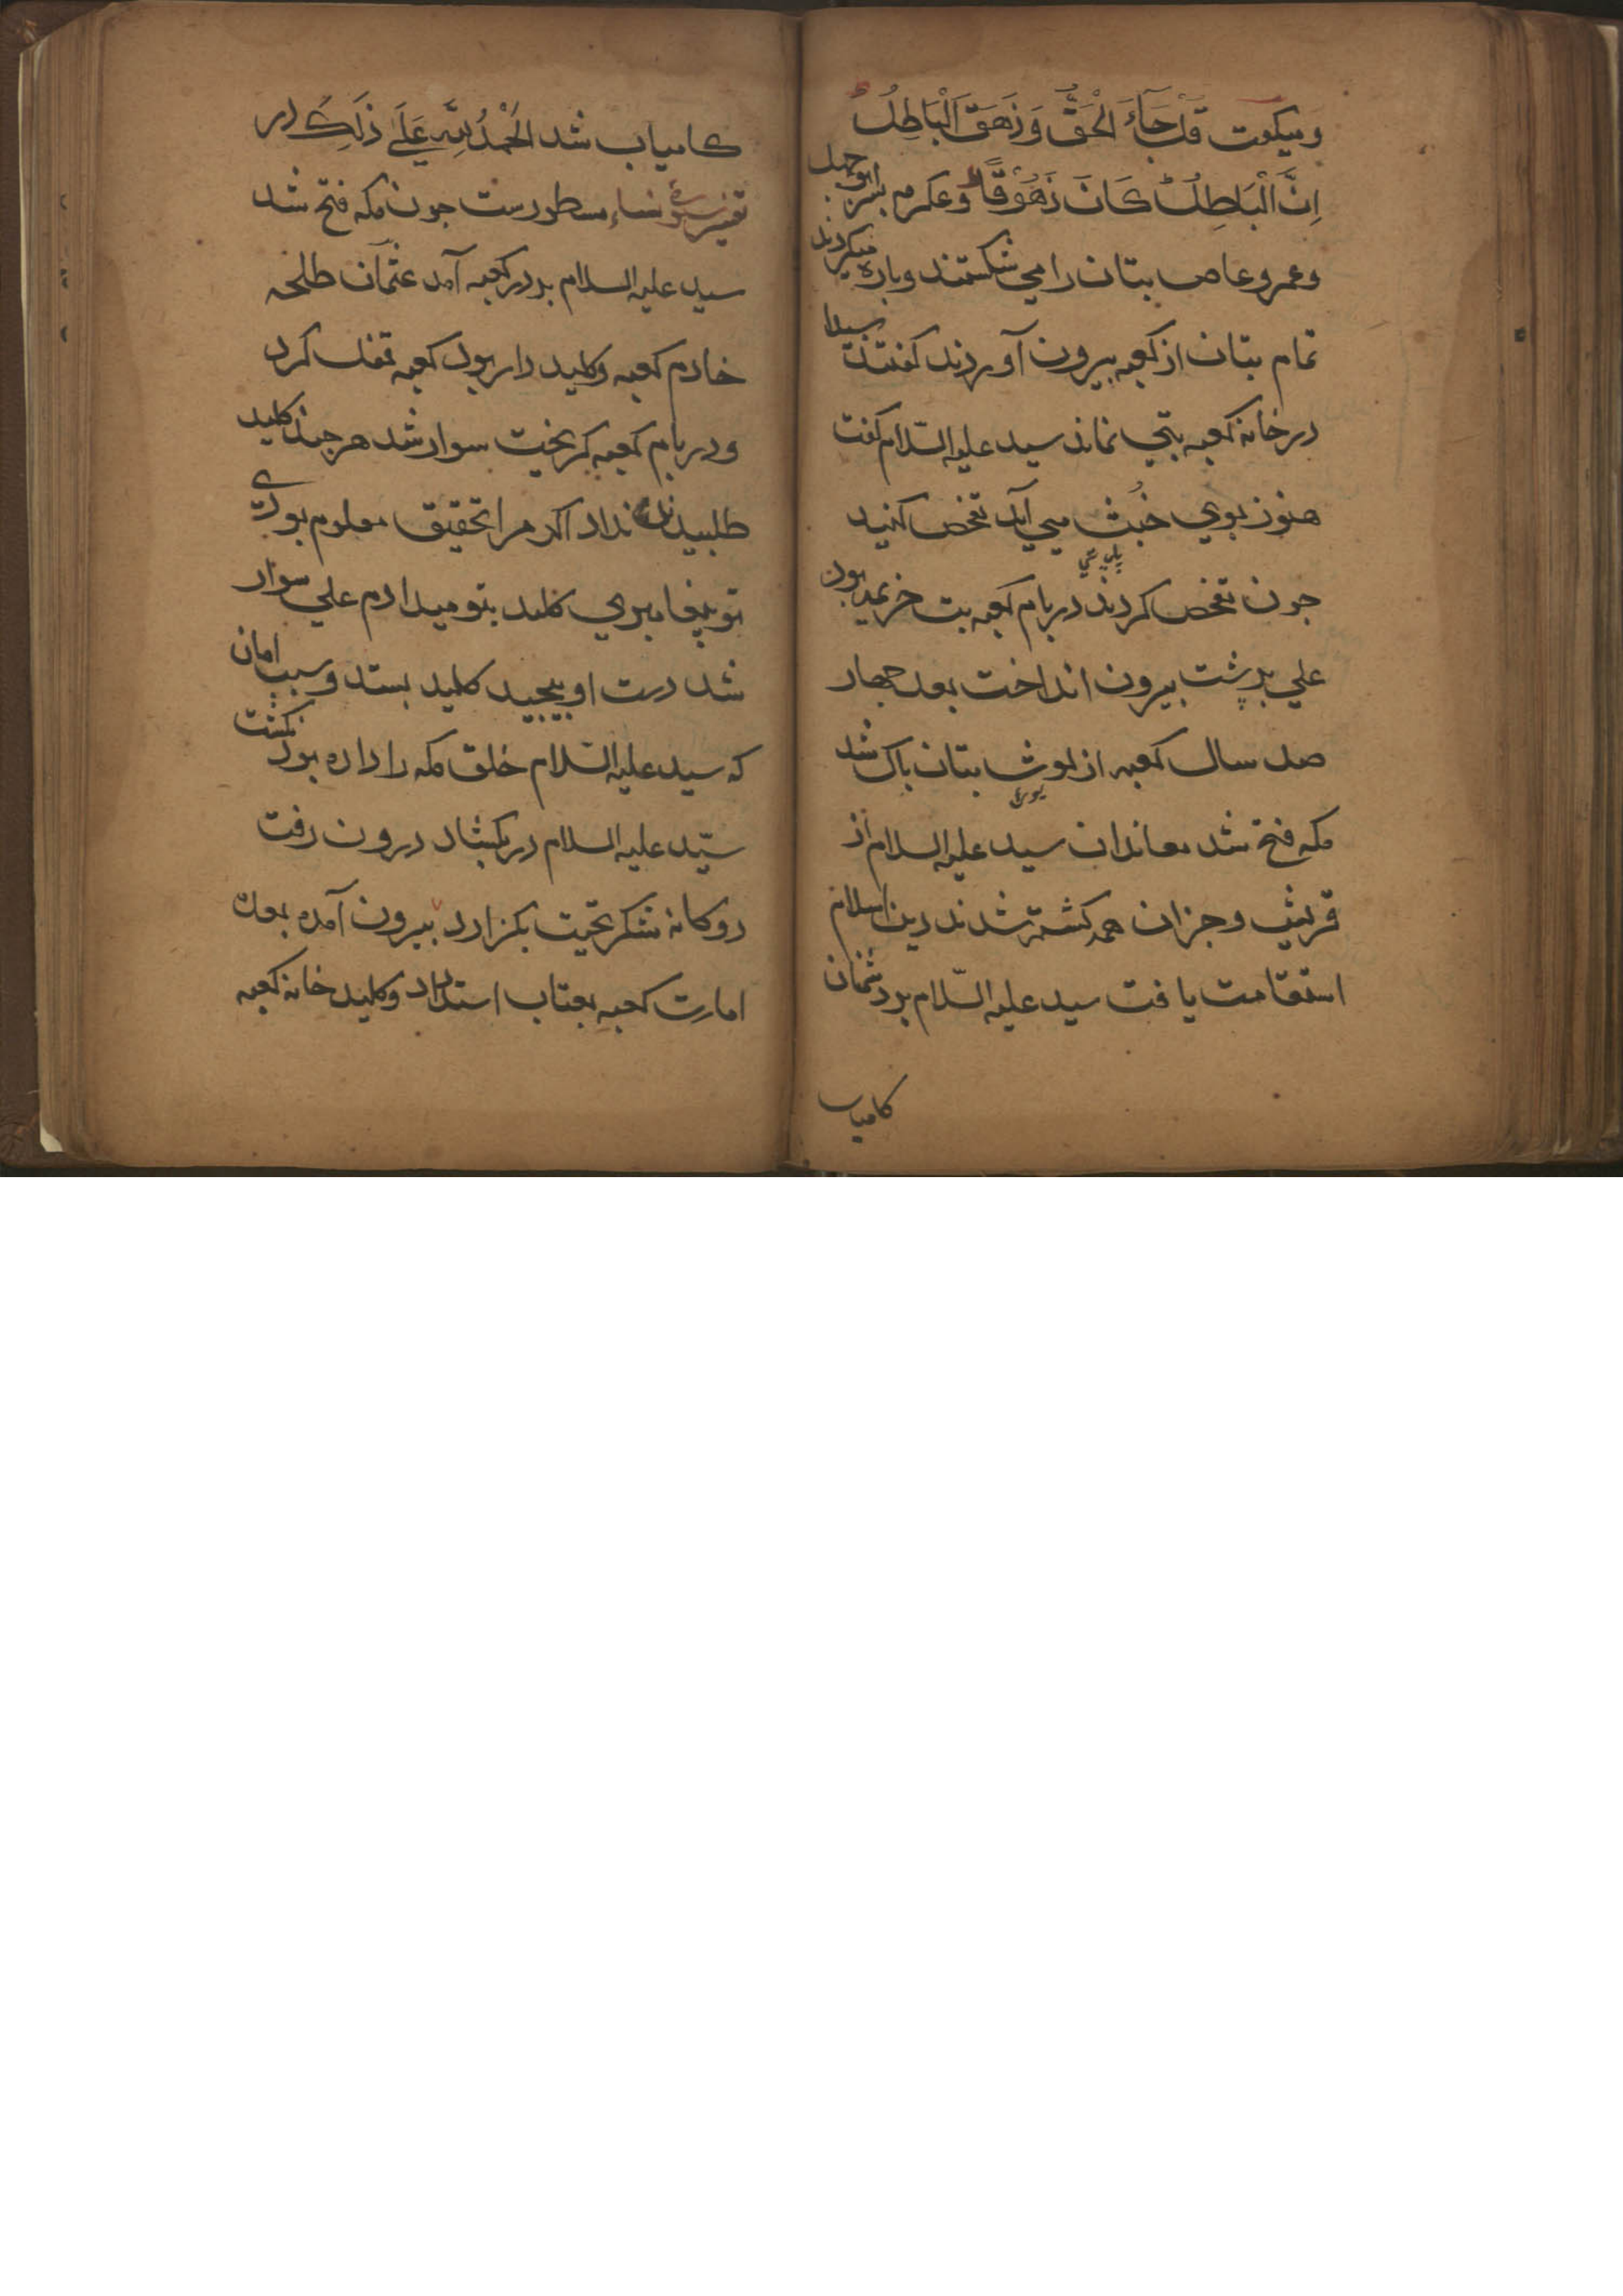 ومیکفت قُلْ جَآءَ الْحَقُّ وَزَهَقَ الْبَاطِلُ
اِنَّ الْبَاطِلَ كَانَ زَهُوْقًا وعکرمه بسر ابوجهل
وعمرو عاص بتان را می شکستند وباره میکردند
تمام بتان از کعبه بیرون آوردند کفتند سیدا
در خانه کعبه بتی نماند سید علیه السّلام کفت
هنوز بوی خُبث می آید تفحص کنید
پلیدی
جون تفحص کردند در بام کعبه بت خزیمه بود
علی بر پشت بیرون انداخت بعد جهار
صد سال کعبه از لوث بتان باک شد
مکه فتح شد معاندان سید علیه السلام از
قریش وجزان همه کشته شدند دین اسلام
استقامت یافت سید علیه السّلام بر دشمنان
کامیاب
کامیاب شد الْحَمْدُ لِلّٰهِ عَلَی ذٰلِكَ در
تفسیر سورهٔ نساء مسطورست جون مکه فتح شد
سید علیه السلام بر در کعبه آمد عثمان طلحه
خادم کعبه وکلید دار بود کعبه قفل کرد
و در بام کعبه کریخت سوار شد هر جند کلید
طلبیدند نداد اکر مرا تحقیق معلوم بودی
تو پیغامبری کلید بتو میدادم علی سوار
شد دست او بیجید کلید بستد و سبب امان
که سید علیه السّلام خلق مکه را داده بود نکشت
سیّد علیه السلام در بکشاد درون رفت
دوکانه شکر تحیت بکزارد بیرون آمده بعده
امارت کعبه بعتاب استداد وکلید خانه کعبه